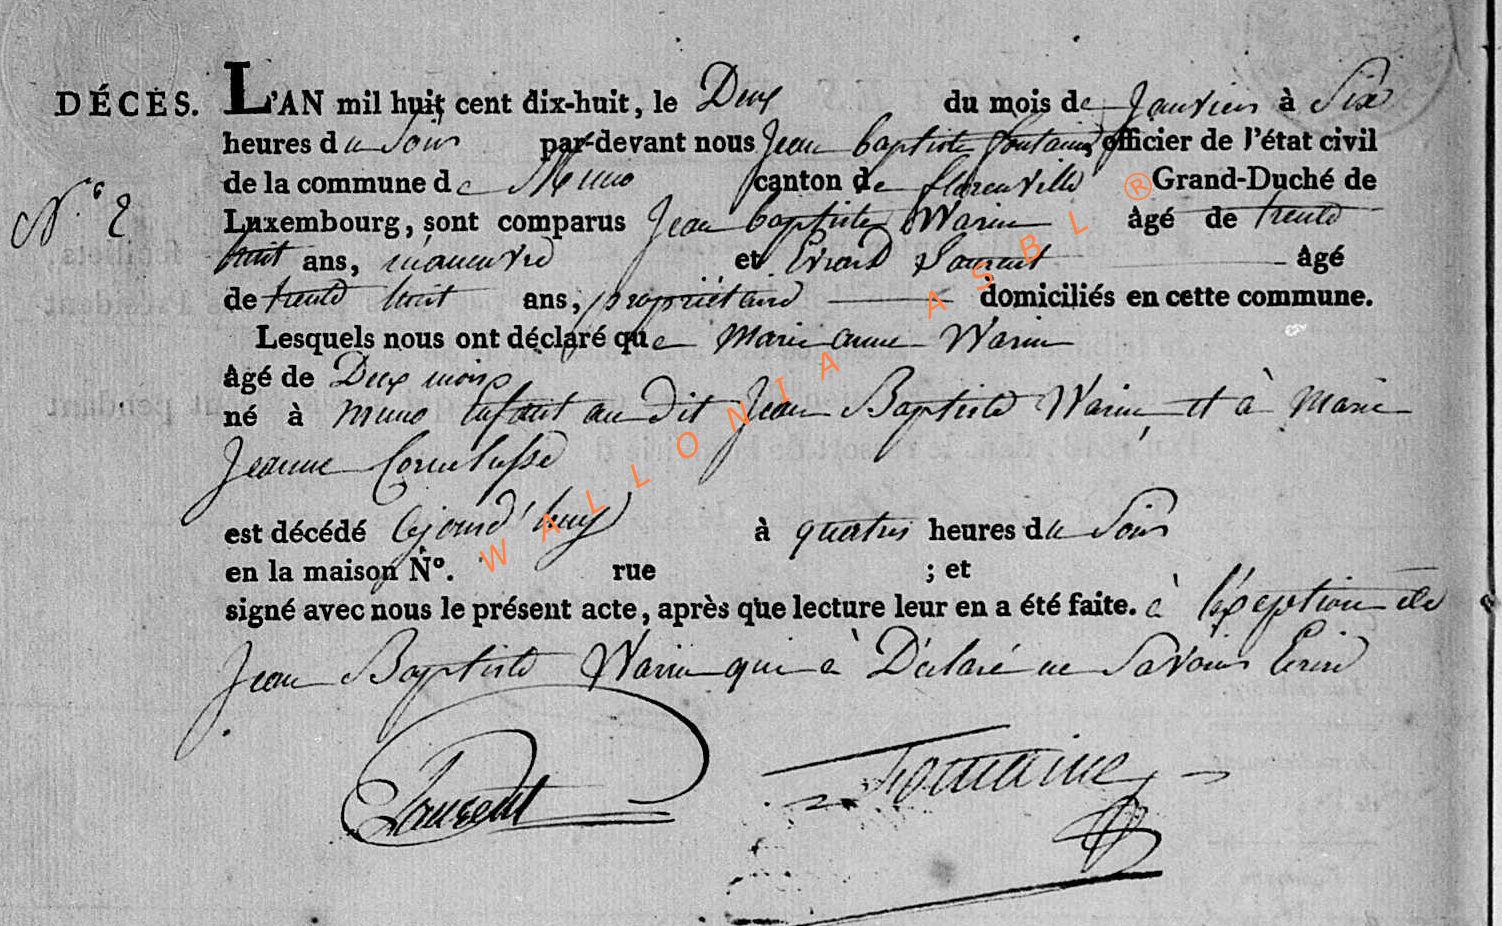 DÉCÈS. L'AN mil huit cent dix-huit, le Deux du mois de Janvier à Six
heures du Soir par-devant nous Jean baptiste fontaine, officier de l'état civil
de la commune de Muno canton de florenville Grand-Duché de
N.º 2
Luxembourg, sont comparus Jean baptiste Warin âgé de trente
huit ans, manœuvre et Evrard Laurent âgé
de trente huit ans, propriétaire domiciliés en cette commune.
Lesquels nous ont déclaré que Marie anne Warin
âgé de Deux mois
né à muno Enfant au dit Jean Baptiste Warin, et à Marie
Jeanne
est décédé à quatre heures du Soir
en la maison Nº. rue ; et
signé avec nous le présent acte, après que lecture leur en a été faite. à l'exeption de
Jean Baptiste Warin qui à Déclaré ne Savoir Ecrire
Laurent Fontaine
WALLONIA ASBL ®